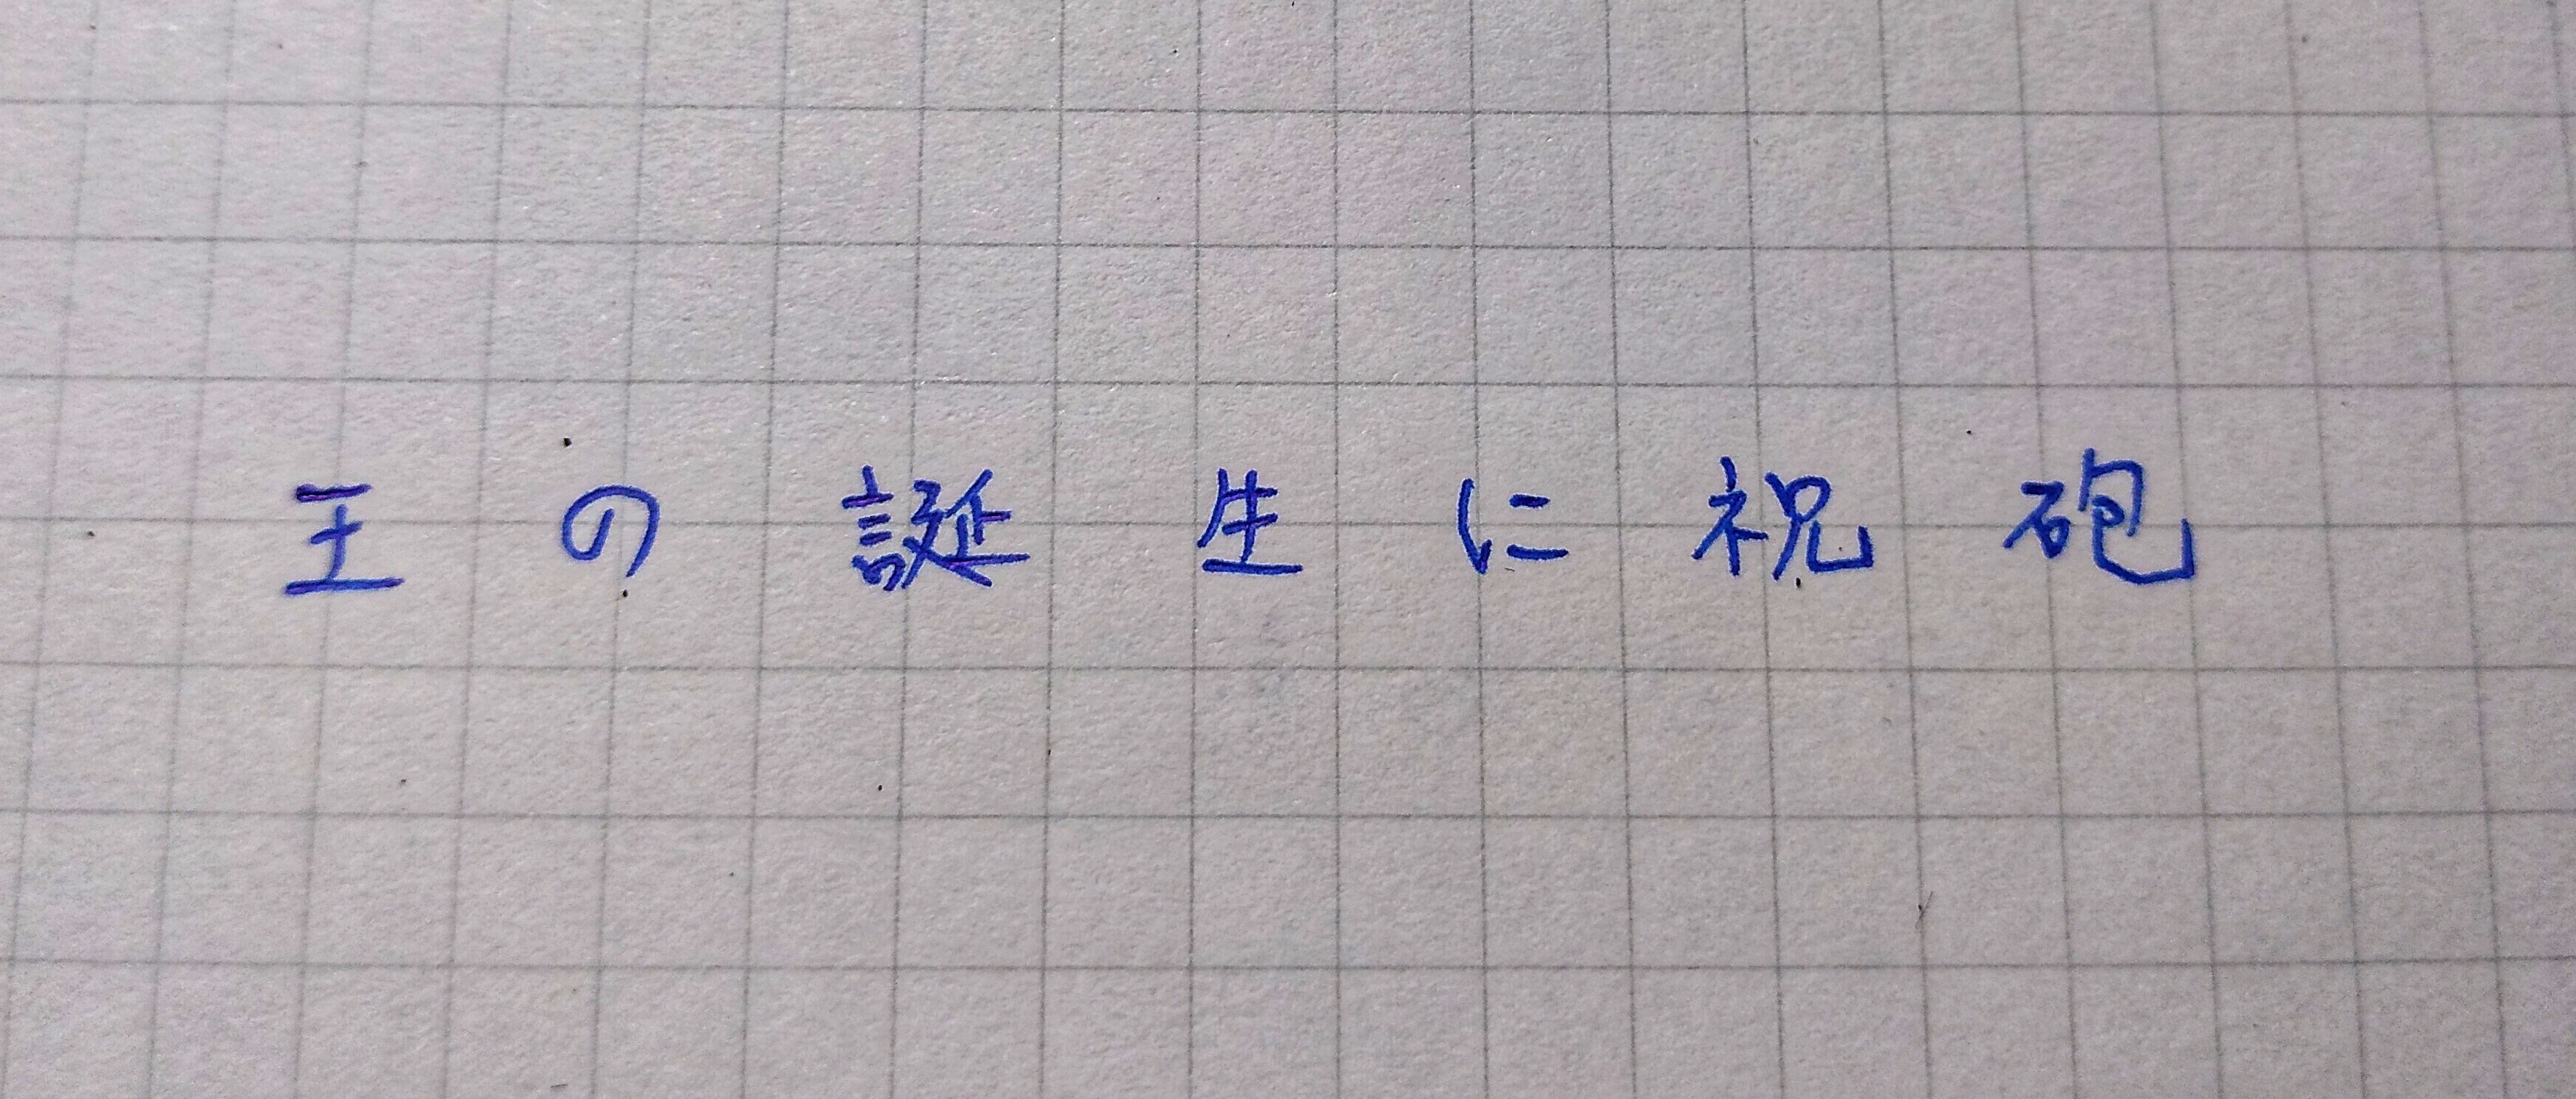 王の誕生に祝砲